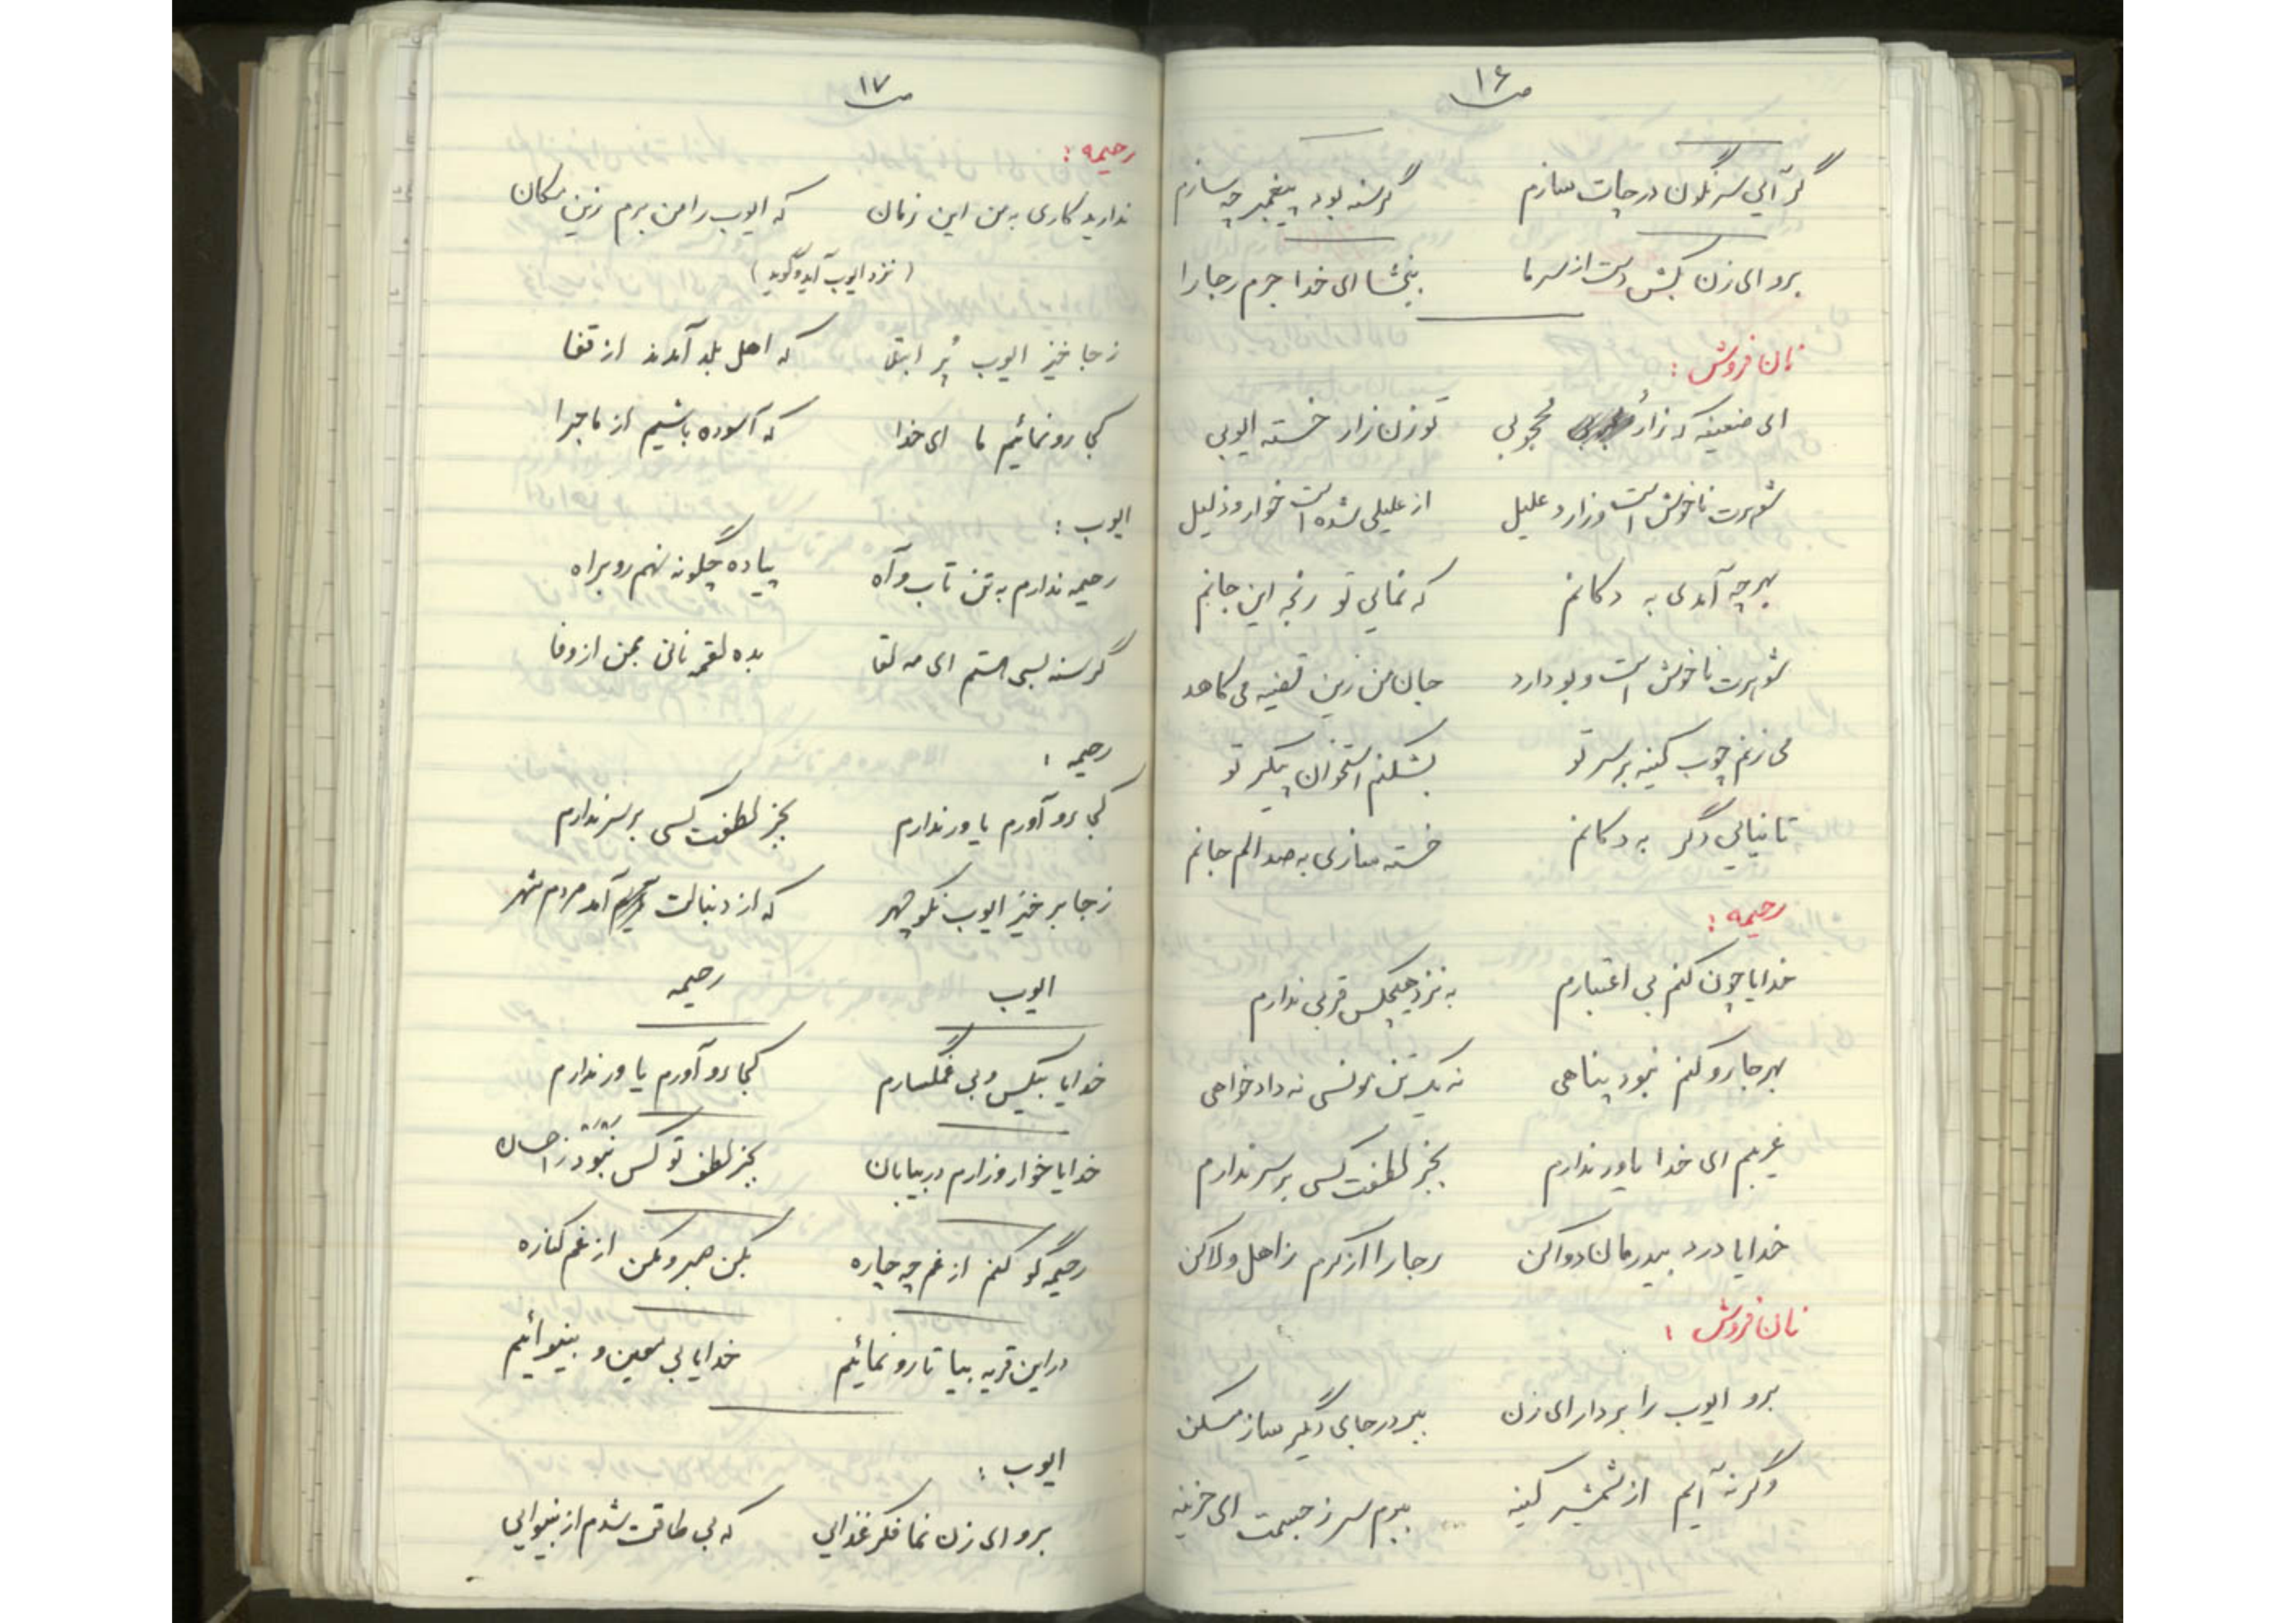 ص ۱۶
گر آیی سرنگون در چات سازم گرسنه بود پیغمبر چه سازم
برو ای زن بکش دست از سر ما ببخشا ای خدا جرم رجا را
نان فروش :
ای ضعیفه که زار محجوبی تو زن زار خسته ایوبی
شوهرت ناخوش است و زار و علیل از علیلی شده است خوار و ذلیل
بهر چه آمدی به دکانم که نمایی تو رنجه این جانم
شوهرت ناخوش است و بو دارد جان من زین قضیه می کاهد
می زنم چوب کینه بر سر تو بشکنم استخوان پیکر تو
تا نیایی دگر به دکانم خسته سازی به صد الم جانم
رحیمه :
خدایا چون کنم بی اعتبارم به نزد هیچکس قربی ندارم
بهر جا رو کنم نبود پناهی نه یک تن مونسی نه دادخواهی
غریبم ای خدا یاور ندارم بجز لطفت کسی بر سر ندارم
خدایا درد بیدرمان دوا کن رجا را از کرم ز اهل ولا کن
نان فروش :
برو ایوب را بردار ای زن ببر در جای دیگر ساز مسکن
وگرنه آیم از شمشیر کینه ببرم سر ز جسمت ای حزینه
ص ۱۷
رحیمه :
ندارید کاری به من این زمان که ایوب را من برم زین مکان
( نزد ایوب آید و گوید )
ز جا خیز ایوب پُر ابتلا که اهل بلد آمدند از قفا
کجا رو نمائیم ما ای خدا که آسوده باشیم از ماجرا
ایوب :
رحیمه ندارم به تن تاب و آه پیاده چگونه نهم رو براه
گرسنه بسی هستم ای مه لقا بده لقمه نانی بمن از وفا
رحیمه :
کجا رو آورم یاور ندارم بجز لطفت کسی بر سر ندارم
ز جا برخیز ایوب نکو چهر که از دنبالت آمد مردم شهر
ایوب رحیمه
خدایا بیکس و بی غمگسارم کجا رو آورم یاور ندارم
خدایا خوار و زارم در بیابان بجز لطف تو کس نبود ز احسان
رحیمه گو کنم از غم چه چاره بکن صبر و مکن از غم کناره
در این قریه بیا تا رو نمائیم خدایا بی معین و بینوائیم
ایوب :
برو ای زن نما فکر غذایی که بی طاقت شدم از بینوایی